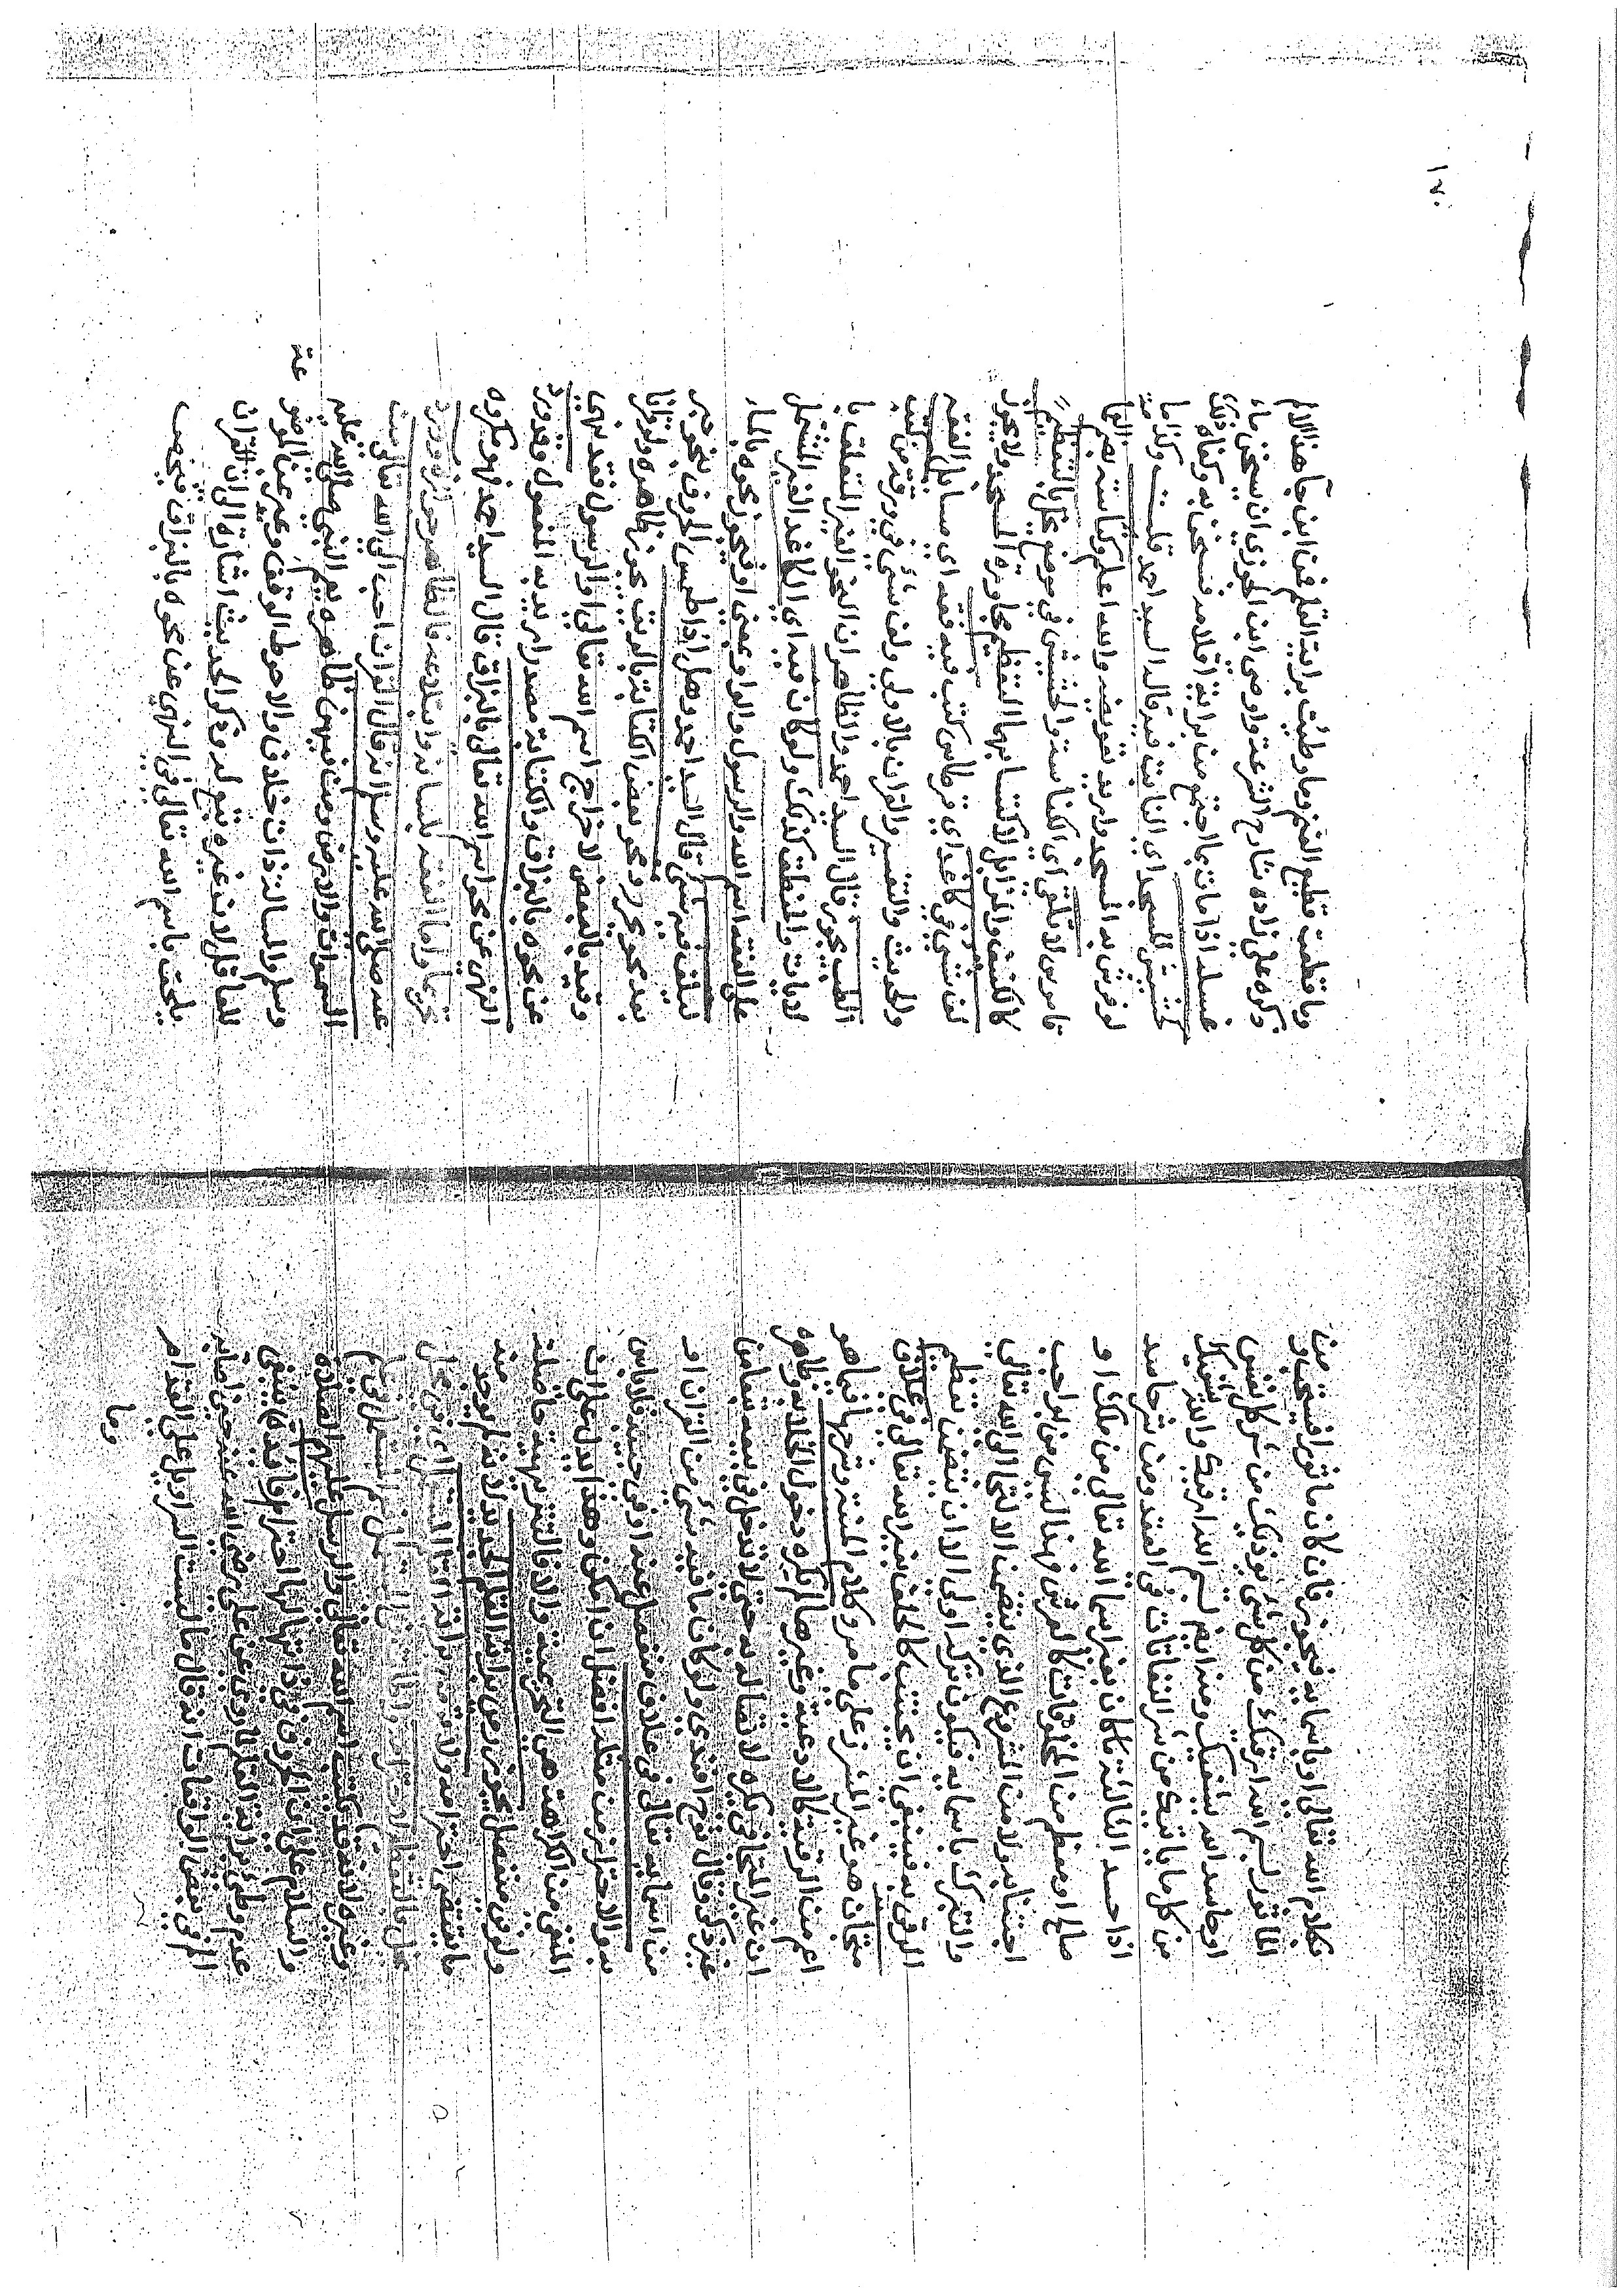 بكلام الله تعالى او باسمايه فيجوز فان كان ماثورا فيستحب ومن
الماثور بسم الله ارقيك من كل شئ يوذيك من شر كل نفس
او حاسد الله يشفيك ومنه ايضا بسم الله ارقيك والله يشفيك
من كل ما ياتيك من شر النفاثات في العقد ومن شر حاسد
اذا حسد الثالثة ما كان بغير اسما الله تعالى من ملك او
صالح او معظم من المخلوقات كالعرش فهذا ليس من الواجب
اجتنابه ولا من المشروع الذي يتضمن الالتجا الى الله تعالى
والتبرك باسمايه فيكون تركه اولى الا ان يتضمن تعظيم
المرقي به فينبغي ان يجتنب كالحلف بغير الله تعالى في غلاف
متجاف هو غير المشرز على ما مر وكلام وشرحها فيما هو
اعم من الرقية كالادعية وغيرها لم يكره دخول الخلا به وظاهره
ان غير المتجافي يكره لاتصاله به حتى لا تدخل في بيعه تبعا من
غير ذكر وقال نوح افندي ولو كان ما فيه شئ من القران او
من اسمايه تعالى في غلاف منفصل عنه او في جيبه فلا باس
به والاحتراز من مثله افضل ان امكن وهذا يدل على ان
المنفي من الكراهة هي التحريمية والا فالتنزيهية حاصلة
ولو في منفصل يجوز رمي براية القلم الجديد لانه لم يوجد منه
ما يقتضي احترامه ولا ترمى براية القلم المستعمل اي في محل
مخل بالتعظيم لاحترامه
وغيره لانه قد يكتب اسم الله تعالى والرسل عليهم الصلاة
والسلام على ان الحروف في ذاتها لها احترام فايدة ينبغي
عدم وطئ براية القلم لما روي عن علي رضي الله عنه حين اصابه
الم في بعض الاوقات انه قال ما لبست السراويل على القدم
وما
١٢٠
وما قطعت قطيع الغنم وما وطئت براية القلم فمن اين جا هذا الالم
ذكره علي زاده شارح الشرعة واوصى ابن الجوزي ان يسخن ماء
غسله اذا مات بما اجتمع من براية اقلامه فسخن به وكفاه ذلك
كحشيش المسجد اي النابت فيه قال السيد احمد قلت وكذا ما
لو فرش به المسجد ولم يرد تعويضه والله اعلم وكناسته بضم الكاف
قاموس لا تلقى اي الكناسة والحشيش في موضع يخل بالتعظيم
كالكنف والمزابل لاكتسابها التعظيم بمجاورة المسجد ولا يجوز
لف شي في كاغد اي قرطاس كتب فيه فقه اي مسايل الفقه
والحديث والتفسير والقران بالاولى ولف شئ في ورقة من كتب
الطب يجوز قال السيد احمد والظاهر ان النحو الغير المتعلق با
لايات والمنطق كذلك ولو كان فيه اي الكاغد الغير المشتمل
على الفقه اسم الله والرسول والواو بمعنى او فيجوز محوه بالماء
ليلف فيه شي قال السيد احمد وهل اذا طمس الحروف بنحو حبر
بعد محو يحرر ومحو بعض الكتابة بالريق يجوز ظاهره ولو قرانا
وقيد بالبعض لاخراج اسم الله تعالى او الرسول فقد نهي
عن محوه بالبزاق والكتابة مصدر اريد به المفعول وقد ورد
النهي عن محو اسم الله تعالى بالبزاق قال السيد احمد فهو مكروه
تحريما واما لعقه بلسانه وابتلاعه فالظاهر جوازه وورد
عنه صلى الله عليه وسلم انه قال القران احب الى الله تعالى من
السموات والارض ومن فيهن ظاهره يعم النبي صلى الله عليه
وسلم والمسالة ذات خلاف والاحوط الوقف وعبر عن الموضوعة
للعاقل لان غيره تبع له وذكر الحديث اشارة الى ان القران
يلحق باسم الله تعالى في النهي عن محوه بالبزاق فيخص